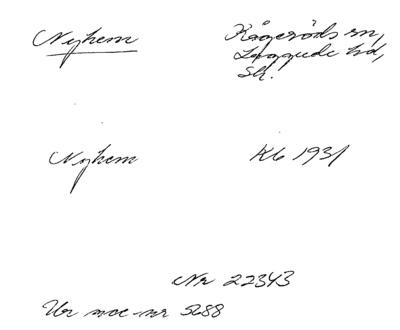 Nyhem Kågeröds sn,
Luggude hd,
Sk.
Nyhem Kb 1931
Nr 22343
Ur acc-nr 5288